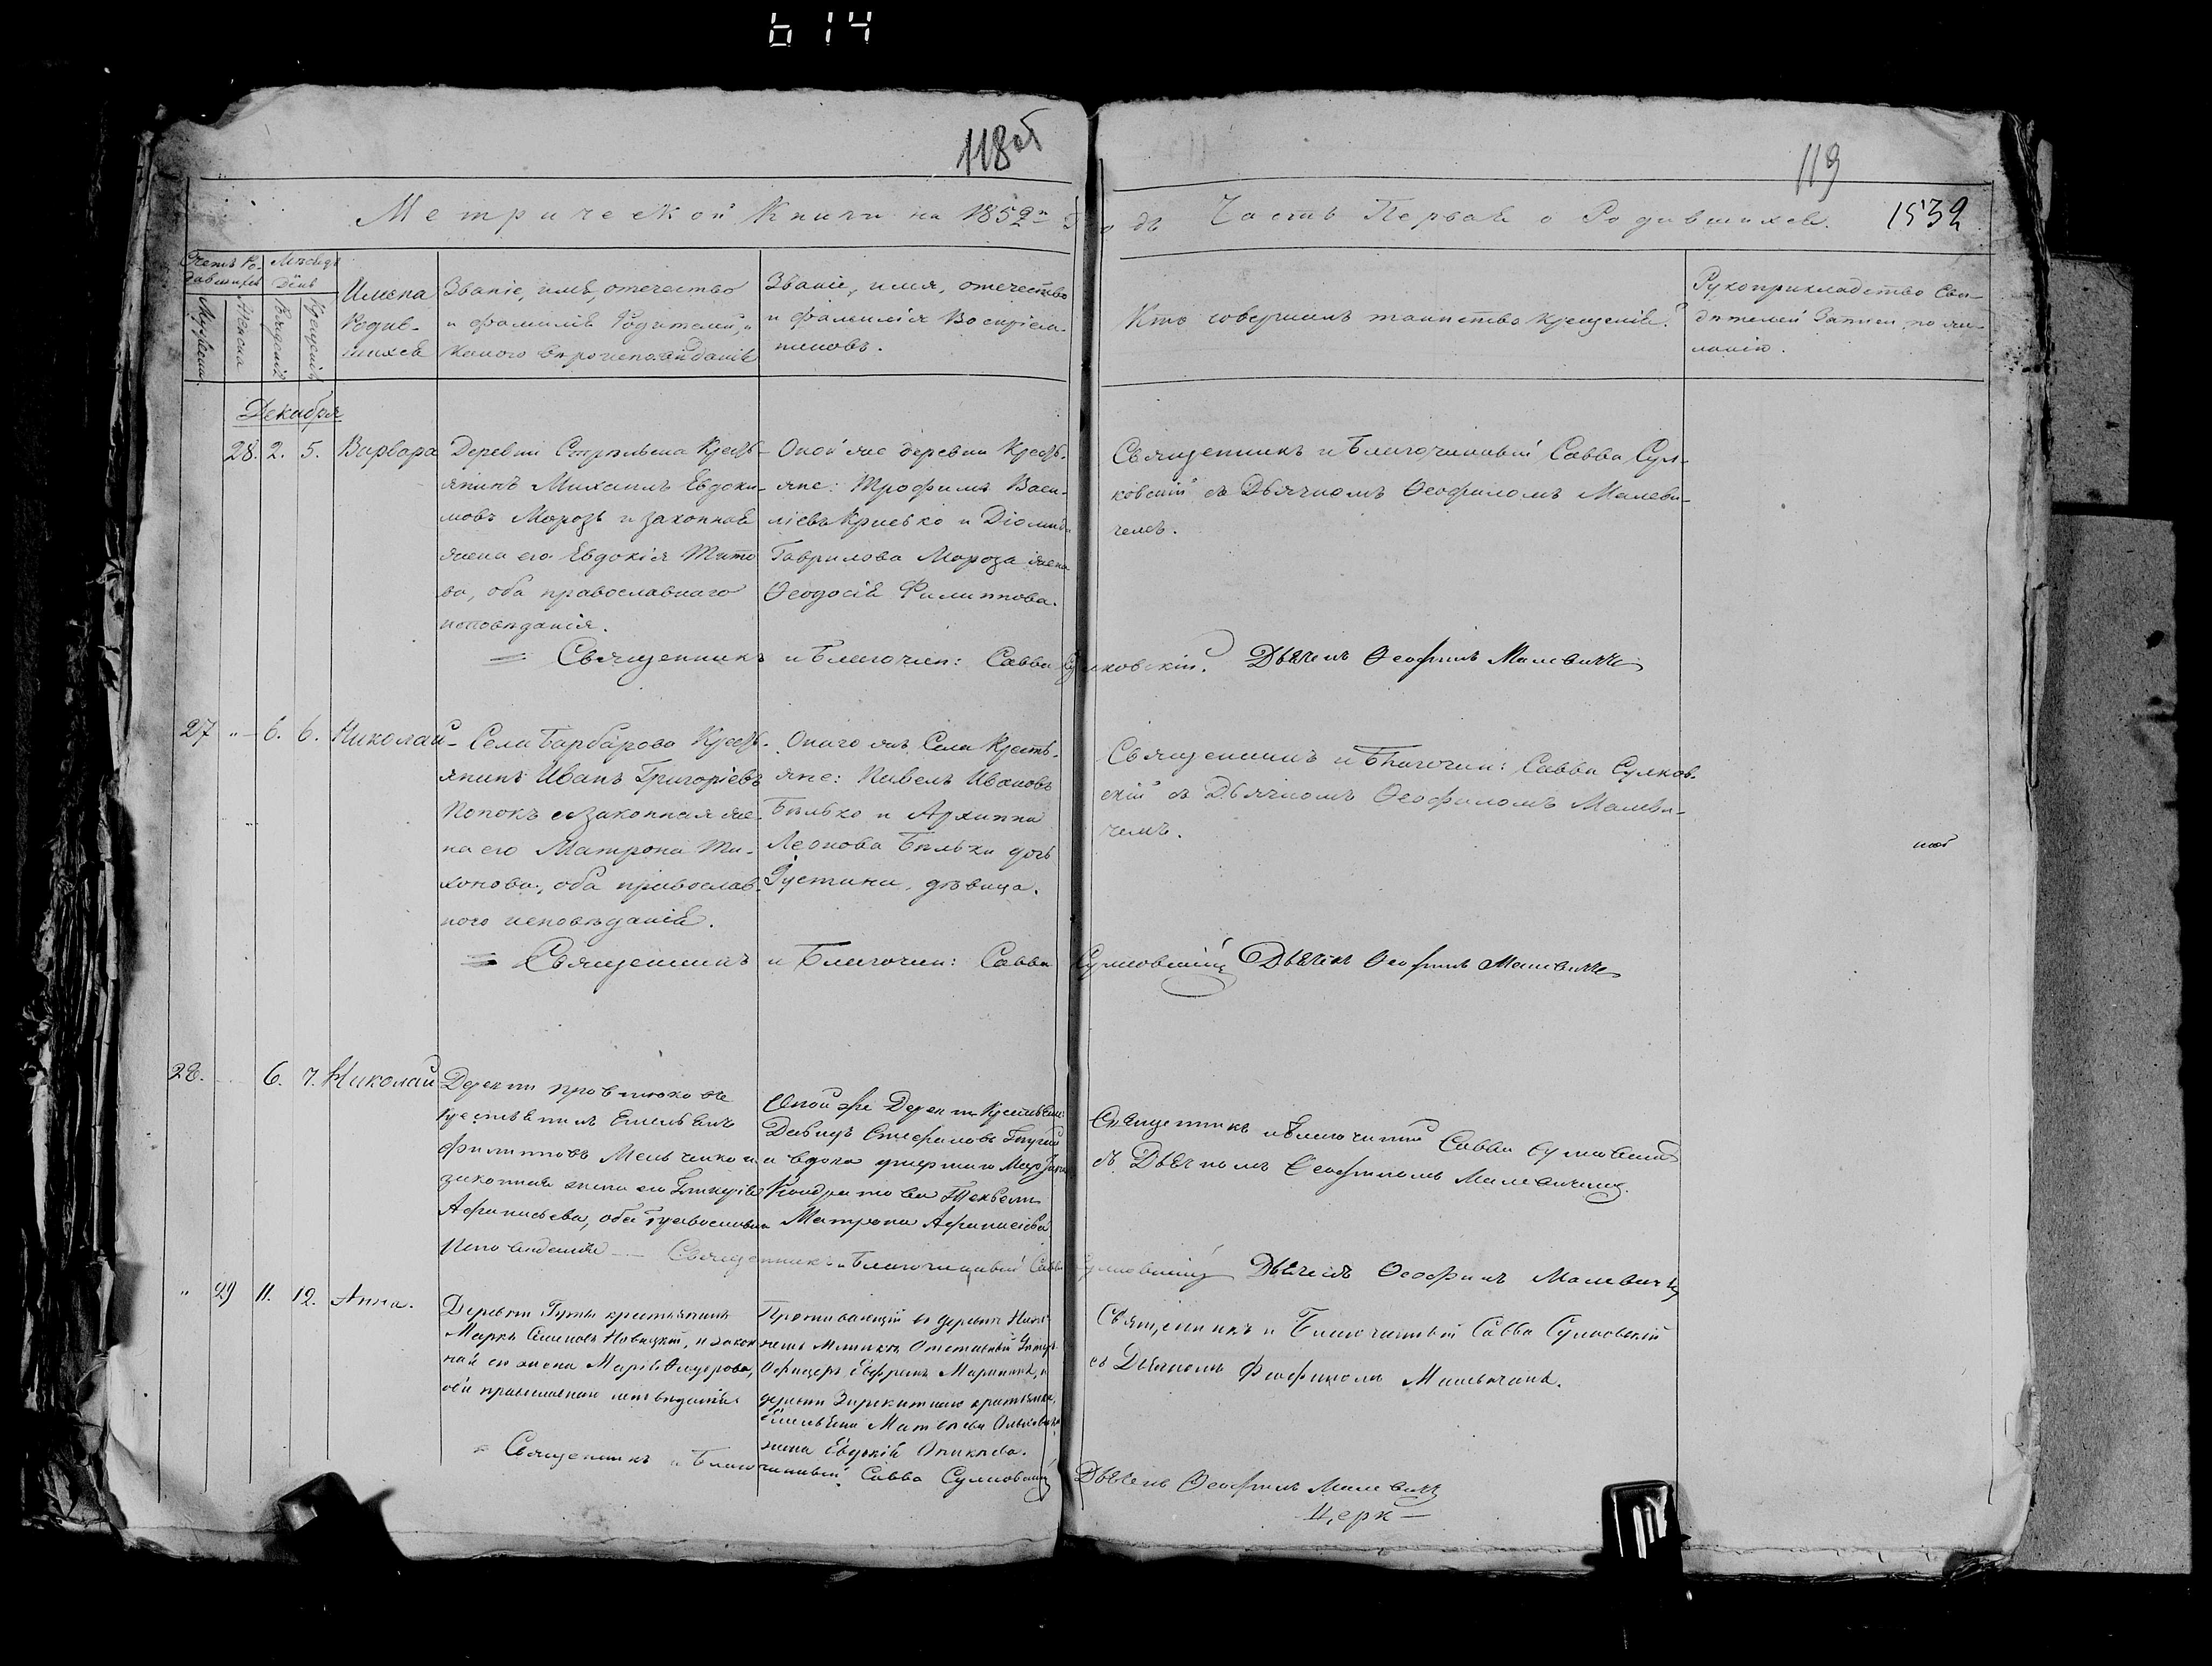 614
118об
119
Метрической Книги на 1852й Годъ Часть Первая о Родившихся.
1532
Счетъ Родившихся
Мужеска
Женска
Мѣсяцъ День
Рожденія
Крещенія
Имена
Родив-
шихся
Званіе, имя, отечество
и фамилія Родителей, и
какого вѣроисповѣданія
Званіе, имя, отечество
и фамилія Воспріем-
никовъ.
Кто совершалъ таинство крещенія.
Рукоприкладство Сви-
дѣтелей Записи по же-
ланію.
Декабря
28. 2. 5. Варвара
Деревни Стрѣльска Кресть-
янинъ Михаилъ Евдоки-
мовъ Морозъ и законная
жена его Евдокія Тито-
ва, оба православнаго
исповѣданія.
Оной же деревни Кресть-
яне: Трофимъ Васи-
ліевъ Криевко и Діомида
Гаврилова Мороза жена
Ѳеодосія Филиппова.
Священникъ и Благочинный Савва Сул-
ковскій съ Дьячкомъ Ѳеофиломъ Малеви-
чемъ.
= Священникъ и Благочин: Савва Сулковскій. Дьячекъ Ѳеофилъ Малевичъ
27 " 6. 6. Николай
Села Барбарова Кресть-
янинъ Иванъ Григоріевъ
Попокъ и законная же-
на его Матрона Ти-
хонова, оба православ-
ного исповѣданія.
Онаго жъ Села Кресть-
яне: Павелъ Ивановъ
Бѣлько и Архиппа
Леонова Бѣлька дочь
Іустина, дѣвица.
Священникъ и Благочин: Савва Сулков-
скій съ Дьячкомъ Ѳеофиломъ Малеви-
чемъ.
= Священникъ и Благочин: Савва Сулковскій Дьячекъ Ѳеофилъ Малевичъ
28. 6. 7. Николай
Деревни
Емельянъ
Филипповъ и
законная жена его Гликерія
Афанасьева, оба православна
исповеданія
Оной же Деревни Крестьяне:
Давидъ Стефановъ
и вдова умершаго
Кондратова
Матрона Афанасіева
Священникъ и Благочинный Савва Сулковскій
съ Дьячкомъ Ѳеофиломъ Малевичемъ.
Священникъ и Благочинный Савва Сулковскій Дьячекъ Ѳеофилъ Малевичъ
" 29 11. 12. Анна.
Деревни Гуты крестьянинъ
Маркъ Семеновъ Новицкій, и закон
ная его жена Марія Ѳедорова,
оба православнаго исповѣданія
Проживающій въ деревни
Отставной Унтеръ
Офицеръ Ефремъ
деревни крестьянина
Емельяна Матвѣева
жена Евдокія
Священникъ и Благочинный Савва Сулковскій
съ Дьячкомъ Феофиломъ Малевичемъ.
Священникъ и Благочинный Савва Сулковскій Дьячекъ Ѳеофилъ Малевичъ
Церк—